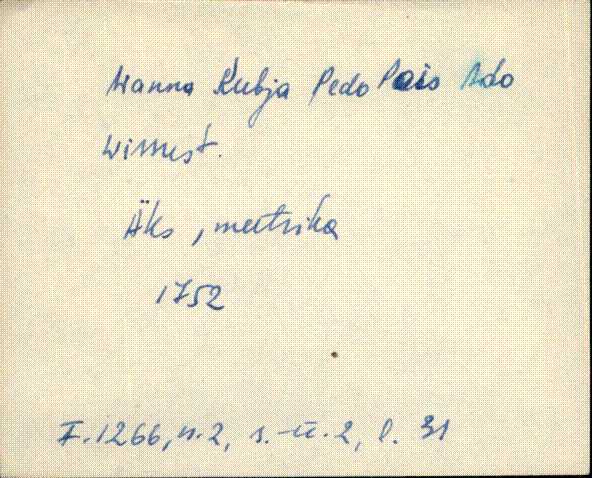 Wanna Kubja Pedo Pois Ado
Wissust.
Äks, meetrika
1752
F.1266, n.2, s.-ü.2, l. 31